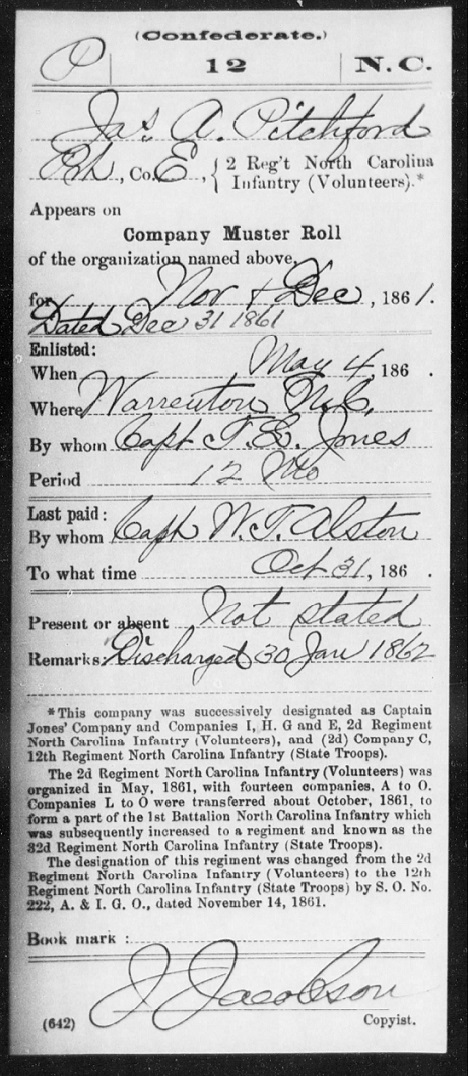 (Confederate.)
P | 12 | N.C.
Jas. A. Pitchford
Pvt, Co. E, { 2 Reg't North Carolina
Infantry (Volunteers).*
Appears on
Company Muster Roll
of the organization named above,
for Nov & Dec, 1861.
Dated Dec 31 1861
Enlisted:
When May 4, 186 .
Where Warrenton N.C.
By whom Capt Jones
Period 12 Mo
Last paid:
By whom Capt W. T. Alston
To what time Oct 31, 186 .
Present or absent Not stated
Remarks: Discharged 30 Jan 1862
*This company was successively designated as Captain
Jones' Company and Companies I, H, G and E, 2d Regiment
North Carolina Infantry (Volunteers), and (2d) Company C,
12th Regiment North Carolina Infantry (State Troops).
The 2d Regiment North Carolina Infantry (Volunteers) was
organized in May, 1861, with fourteen companies, A to O.
Companies L to O were transferred about October, 1861, to
form a part of the 1st Battalion North Carolina Infantry which
was subsequently increased to a regiment and known as the
32d Regiment North Carolina Infantry (State Troops).
The designation of this regiment was changed from the 2d
Regiment North Carolina Infantry (Volunteers) to the 12th
Regiment North Carolina Infantry (State Troops) by S. O. No.
222, A. & I. G. O., dated November 14, 1861.
Book mark:
J Jacobson
(642) Copyist.